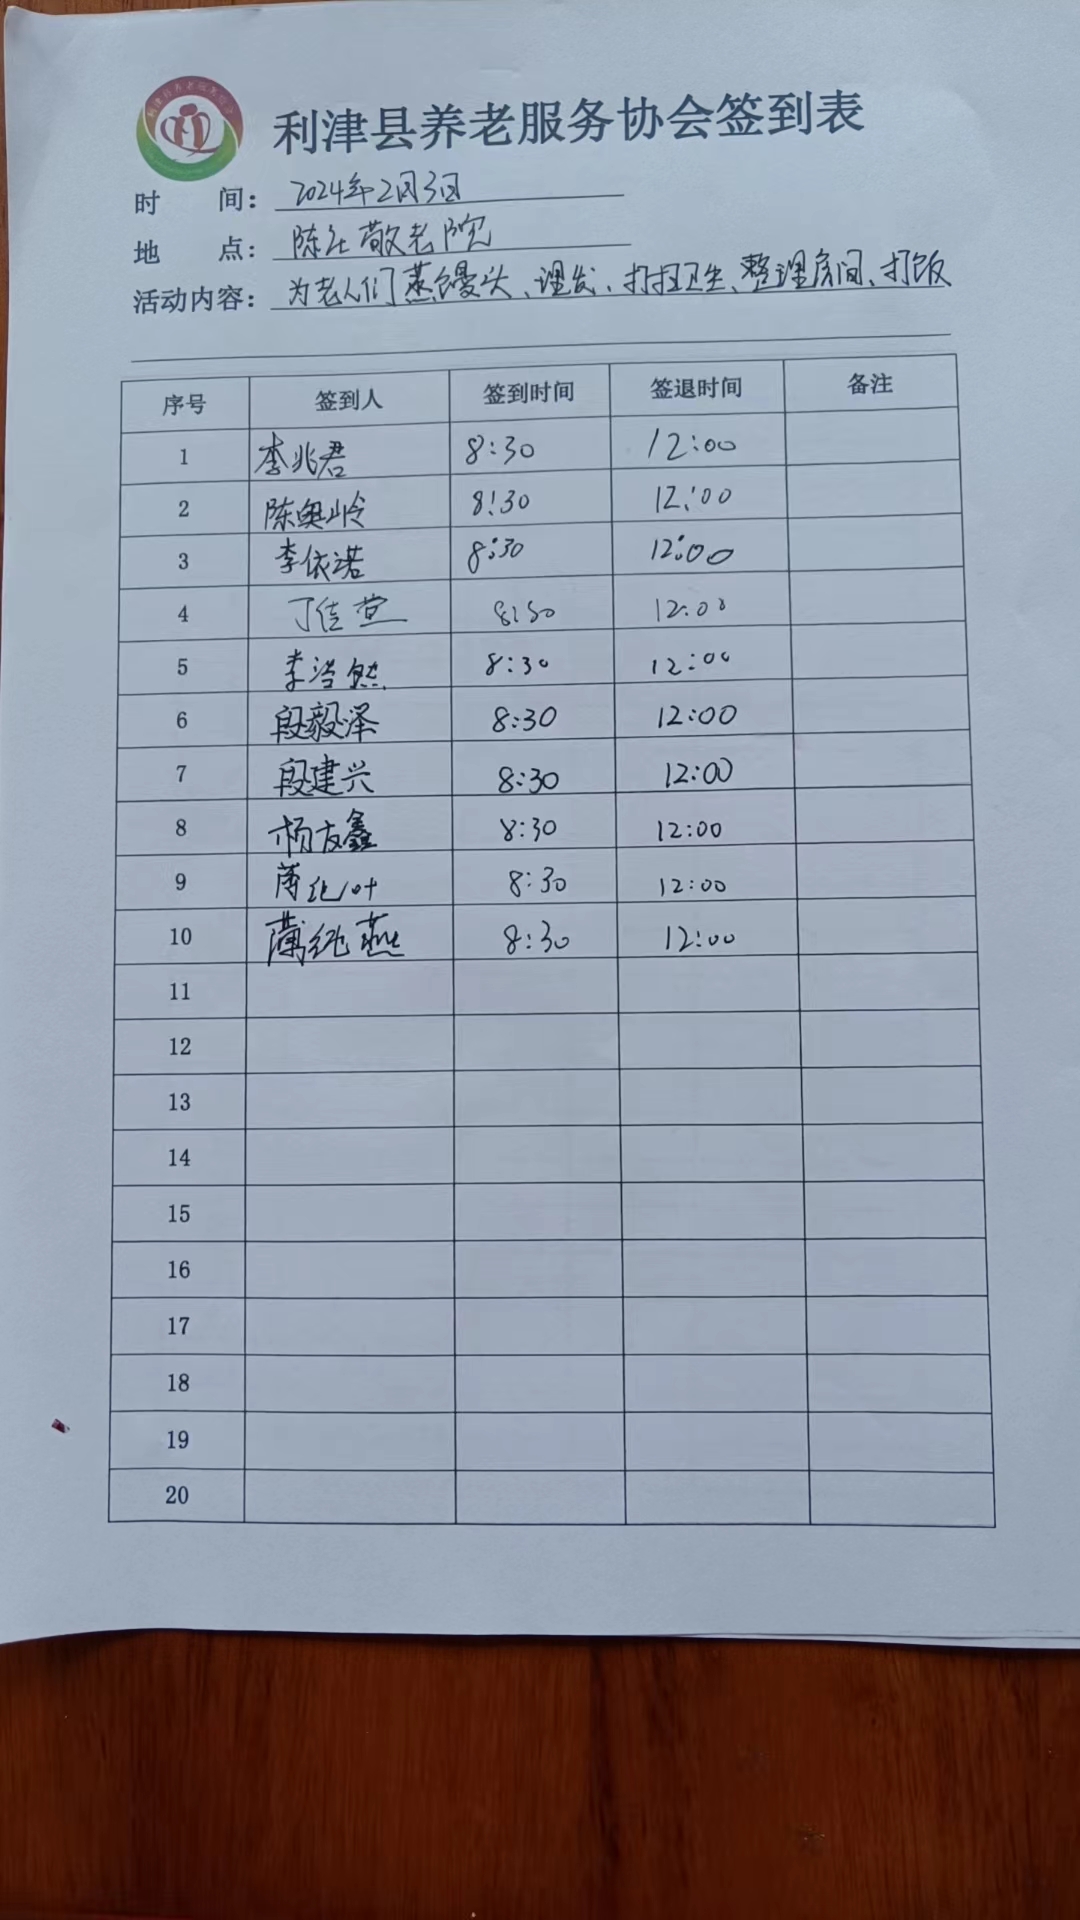 利津县养老服务协会签到表
时 间：2024年2月3日
地 点：陈庄敬老院
活动内容：为老人们蒸馒头、理发、打扫卫生、整理房间、打饭
序号 签到人 签到时间 签退时间 备注
1 李兆君 8:30 12:00
2 陈奥岭 8:30 12:00
3 李依诺 8:30 12:00
4 丁佳萱 8:30 12:00
5 李浩然 8:30 12:00
6 段毅泽 8:30 12:00
7 段建兴 8:30 12:00
8 杨友鑫 8:30 12:00
9 8:30 12:00
10 8:30 12:00
11
12
13
14
15
16
17
18
19
20